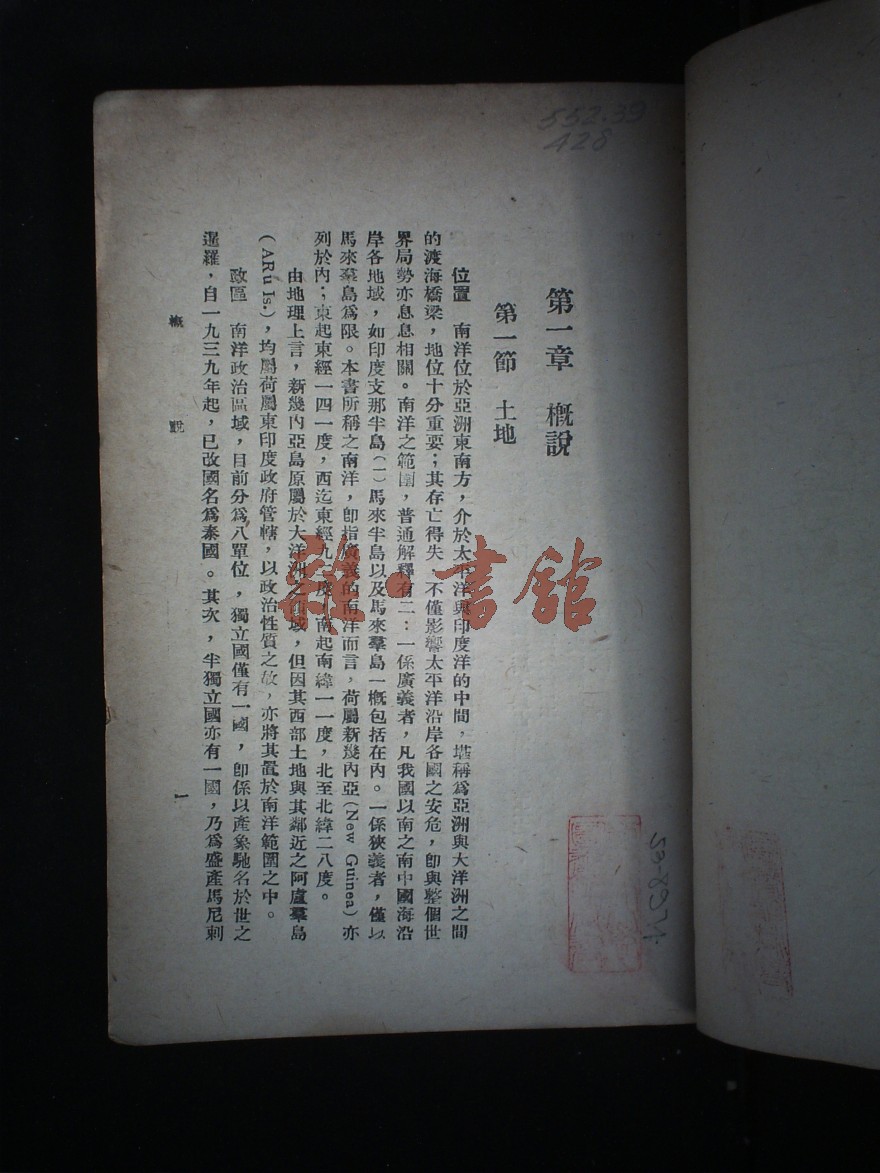 552.39
428
第一章　概說
第一節　土地
位置　南洋位於亞洲東南方，介於太平洋與印度洋的中間，堪稱爲亞洲與大洋洲之間
的渡海橋梁，地位十分重要；其存亡得失，不僅影響太平洋沿岸各國之安危，卽與整個世
界局勢亦息息相關。南洋之範圍，普通解釋有二：一係廣義者，凡我國以南之南中國海沿
岸各地域，如印度支那半島（一）馬來半島以及馬來羣島一概包括在內。一係狹義者，僅以
馬來羣島爲限。本書所稱之南洋，卽指廣義的南洋而言，荷屬新幾內亞(New Guinea)亦
列於內；東起東經一四一度，西迄東經九二度，南起南緯一一度，北至北緯二八度。
由地理上言，新幾內亞島原屬於大洋洲之領域，但因其西部土地與其鄰近之阿盧羣島
(ARu Is.)，均屬荷屬東印度政府管轄，以政治性質之故，亦將其置於南洋範圍之中。
政區　南洋政治區域，目前分爲八單位，獨立國僅有一國，卽係以產象馳名於世之
暹羅，自一九三九年起，已改國名爲泰國。其次，半獨立國亦有一國，乃爲盛產馬尼剌
概　說
一
雜·書館